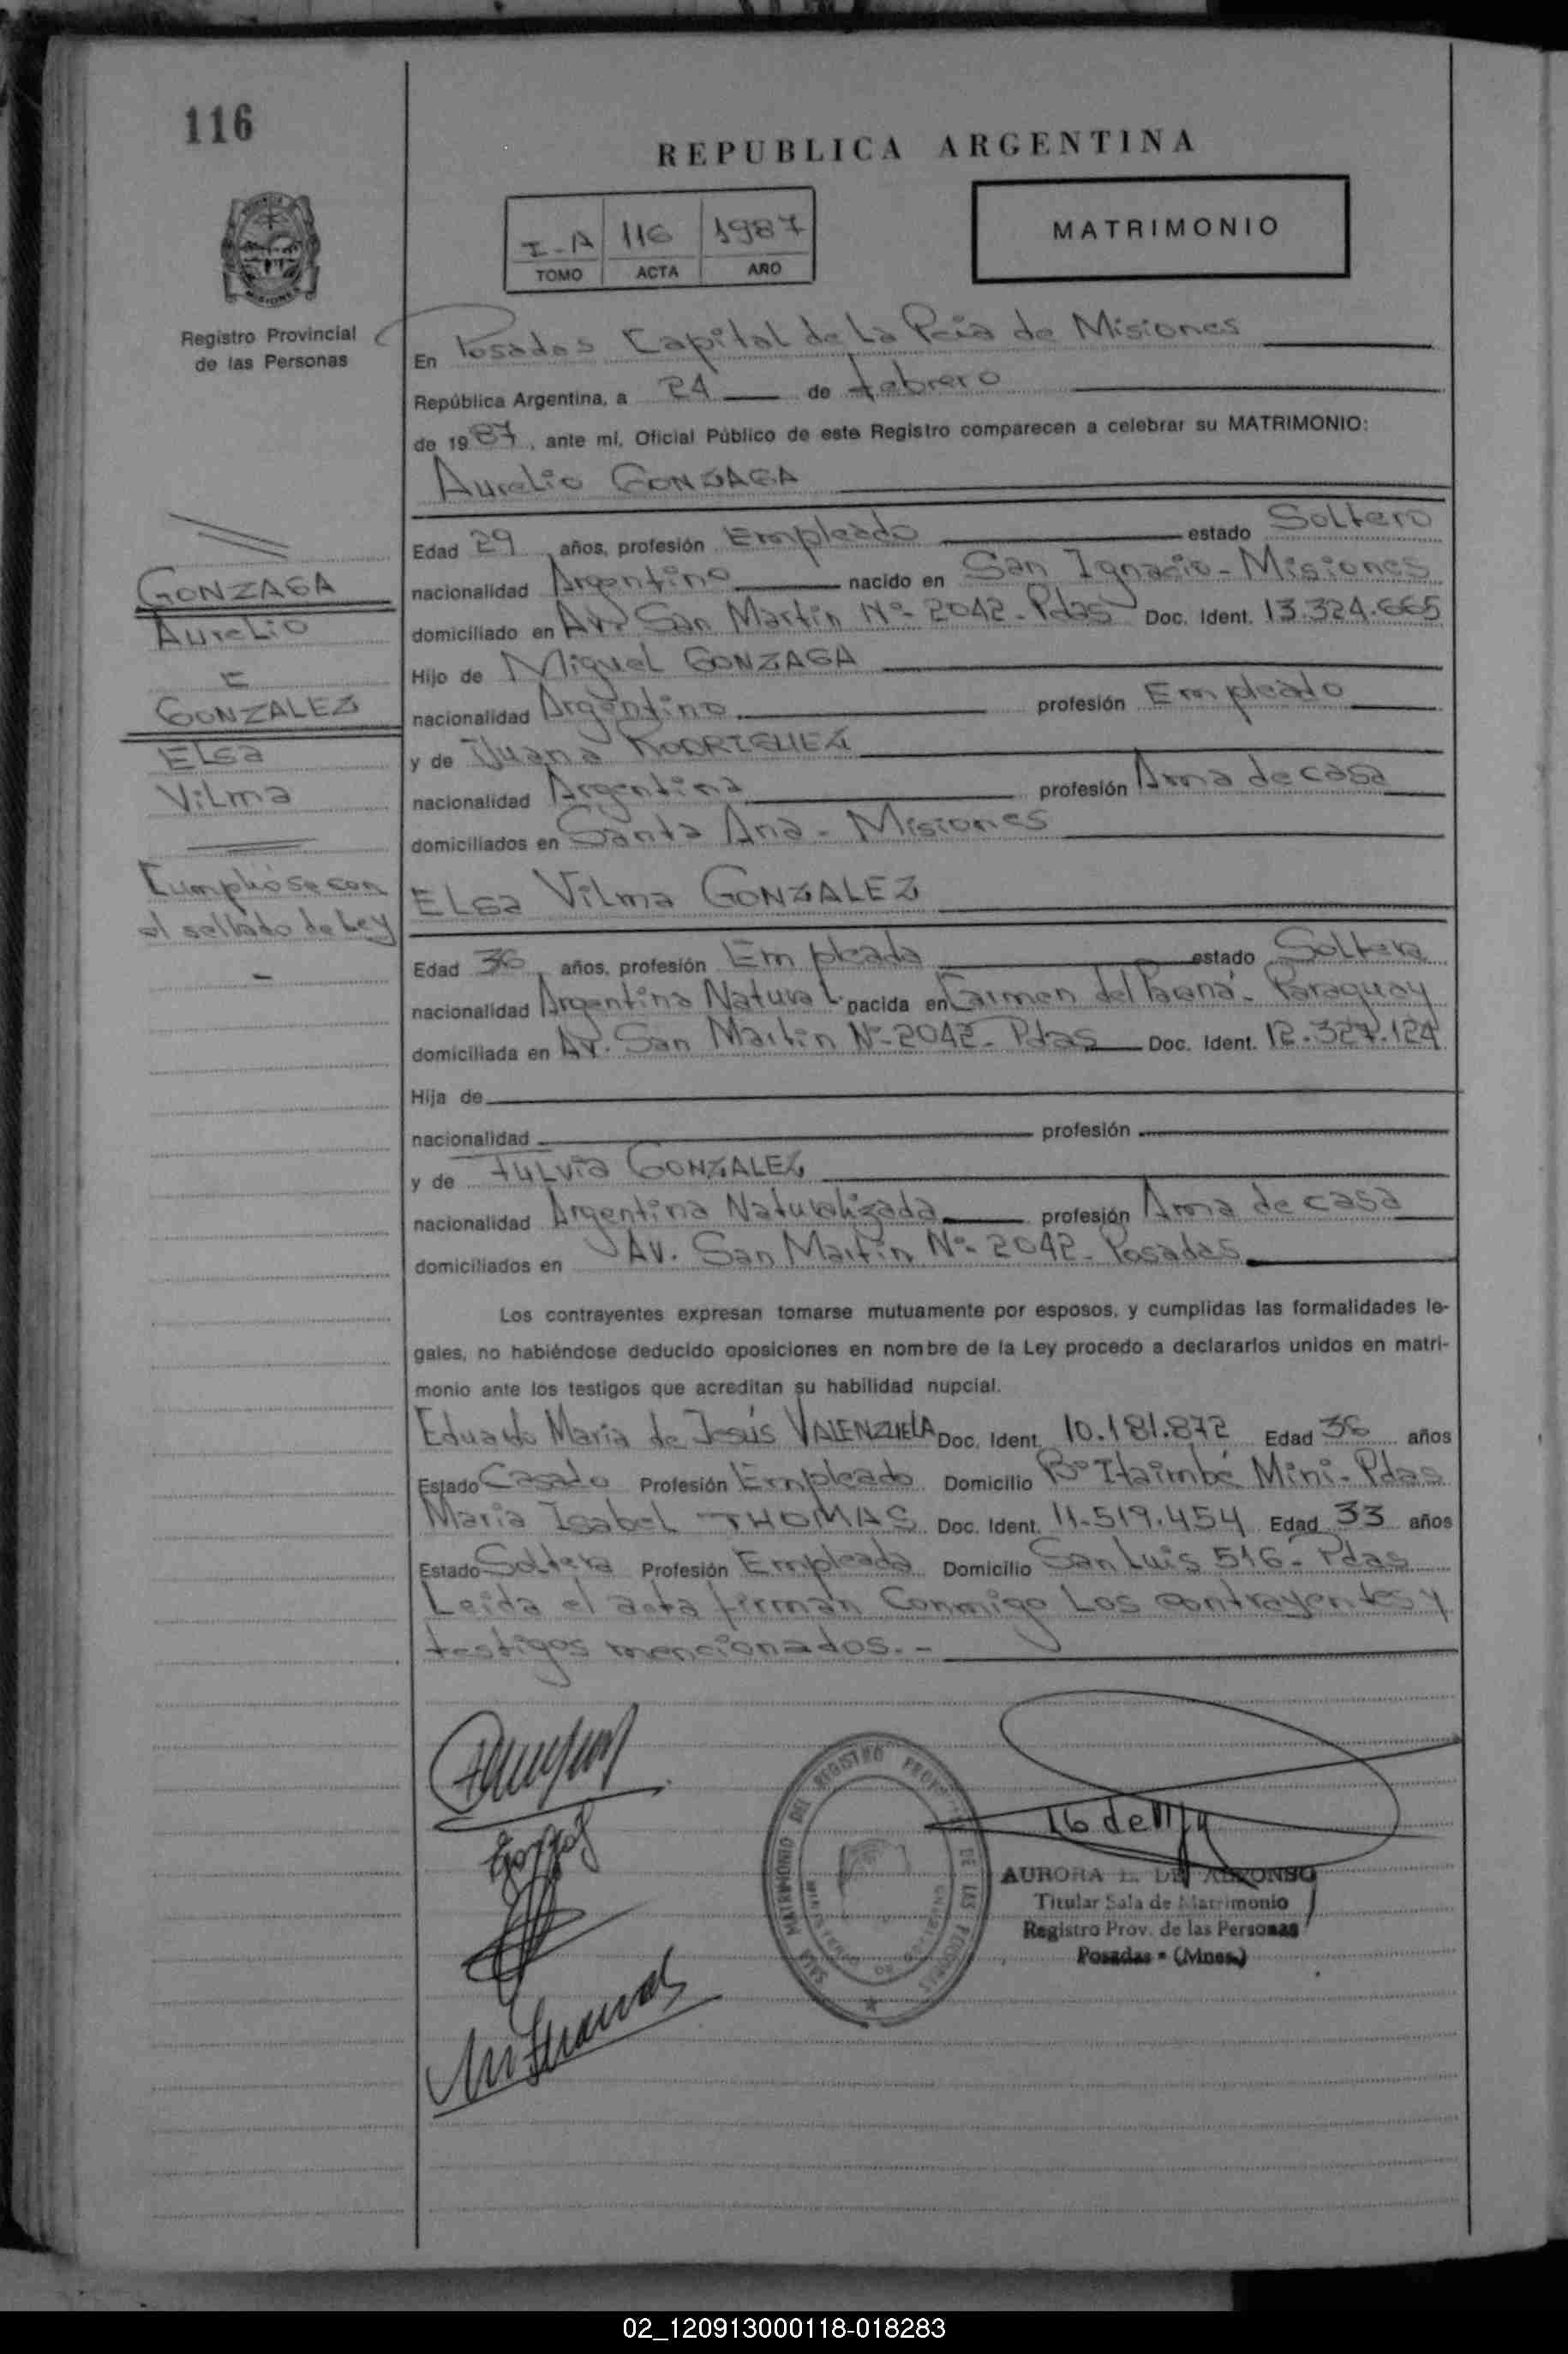 116
REPUBLICA ARGENTINA
I-A 116 1987
TOMO ACTA AÑO
MATRIMONIO
Registro Provincial
de las Personas
En Posadas Capital de La Pcia de Misiones
República Argentina, a 24 de febrero
de 1987, ante mí, Oficial Público de este Registro comparecen a celebrar su MATRIMONIO:
Aurelio GONZAGA
Edad 29 años, profesión Empleado estado Soltero
nacionalidad Argentino nacido en San Ignacio - Misiones
domiciliado en Av. San Martin Nº 2042 - Pdas Doc. Ident. 13.324.665
Hijo de Miguel GONZAGA
nacionalidad Argentino profesión Empleado
y de Juana RODRIGUEZ
nacionalidad Argentina profesión Ama de casa
domiciliados en Santa Ana - Misiones
GONZAGA
Aurelio
c
GONZALEZ
Elsa
Vilma
Cumplióse con
el sellado de Ley
-
Elsa Vilma GONZALEZ
Edad 36 años, profesión Empleada estado Soltera
nacionalidad Argentina Natural. nacida en Carmen del Paraná - Paraguay
domiciliada en Av. San Martin Nº 2042 - Pdas Doc. Ident. 12.327.124
Hija de
nacionalidad profesión
y de Fulvia GONZALEZ
nacionalidad Argentina Naturalizada profesión Ama de casa
domiciliados en Av. San Martin Nº 2042 - Posadas
Los contrayentes expresan tomarse mutuamente por esposos, y cumplidas las formalidades le-
gales, no habiéndose deducido oposiciones en nombre de la Ley procedo a declararlos unidos en matri-
monio ante los testigos que acreditan su habilidad nupcial.
Eduardo Maria de Jesús VALENZUELA Doc. Ident. 10.181.872 Edad 36 años
Estado Casado Profesión Empleado Domicilio Bº Itaimbé Mini - Pdas
Maria Isabel THOMAS Doc. Ident. 11.519.454 Edad 33 años
Estado Soltera Profesión Empleada Domicilio San Luis 516 - Pdas
Leida el acta firman Conmigo Los contrayentes y
testigos mencionados. -
SALA MATRIMONIO DEL REGISTRO PROV. DE LAS PERSONAS
MINISTERIO DE GOBIERNO
AURORA L. DE ALFONSO
Titular Sala de Matrimonio
Registro Prov. de las Personas
Posadas - (Mnes.)
02_120913000118-018283